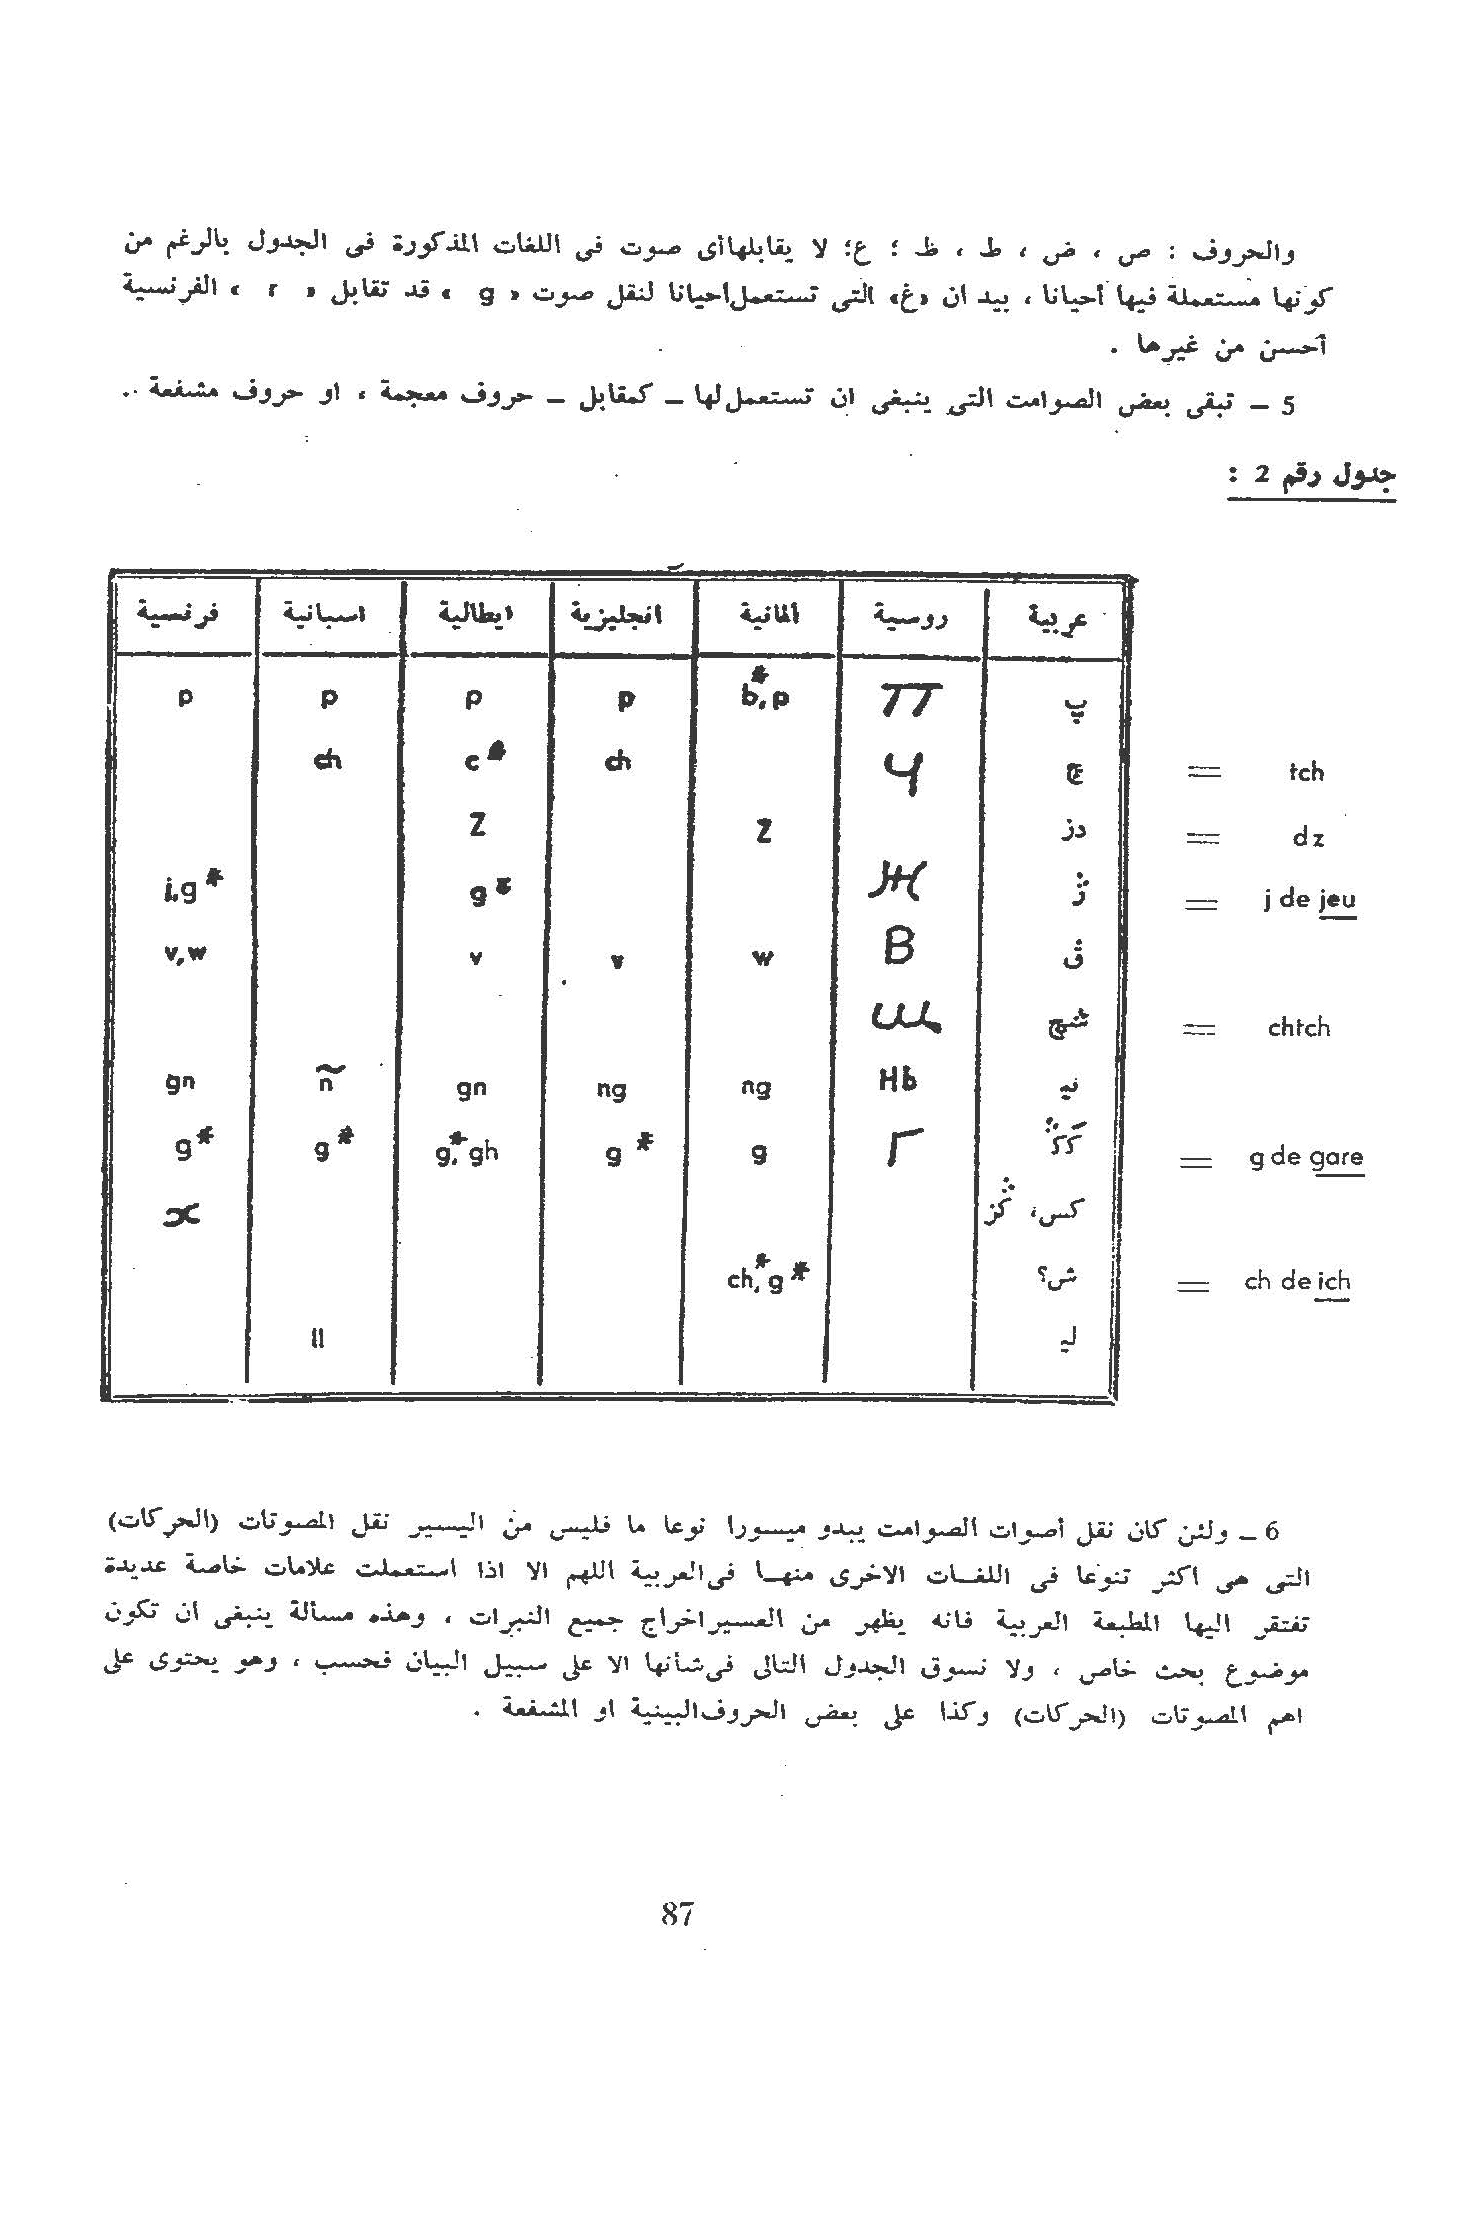 والحروف : ص ، ض ، ط ، ظ ؛ ع؛ لا يقابلهاأى صوت فى اللغات المذكورة فى الجدول بالرغم من
كونها مستعملة فيها أحيانا ، بيد ان «غ» التى تستعمل احيانا لنقل صوت « g » قد تقابل « r » الفرنسية
أحسن من غيرها .
5 – تبقى بعض الصوامت التى ينبغى ان تستعمل لها – كمقابل – حروف معجمة ، او حروف مشفعة .
جدول رقم 2 :
عربية روسية ألمانية انجليزية ايطالية اسبانية فرنسية
پ П b*,p p p p p
چ Ч ch c* ch = tch
دز z z = dz
ژ Ж g* j,g* = j de jeu
ڤ В w v v v,w
شچ Щ = chtch
نيـ Нь ng ng gn ñ gn
ڭـ Г g g* g*,gh g* g* = g de gare
كس، ڭز x
ش؟ ch*,g* = ch de ich
ليـ ll
6 – ولئن كان نقل أصوات الصوامت يبدو ميسورا نوعا ما فليس من اليسير نقل المصوتات (الحركات)
التى هى اكثر تنوعا فى اللغات الاخرى منها فى العربية اللهم الا اذا استعملت علامات خاصة عديدة
تفتقر اليها المطبعة العربية فانه يظهر من العسير اخراج جميع النبرات ، وهذه مسألة ينبغى ان تكون
موضوع بحث خاص ، ولا نسوق الجدول التالى فى شأنها الا على سبيل البيان فحسب ، وهو يحتوى على
اهم المصوتات (الحركات) وكذا على بعض الحروف البينية او المشفعة .
87